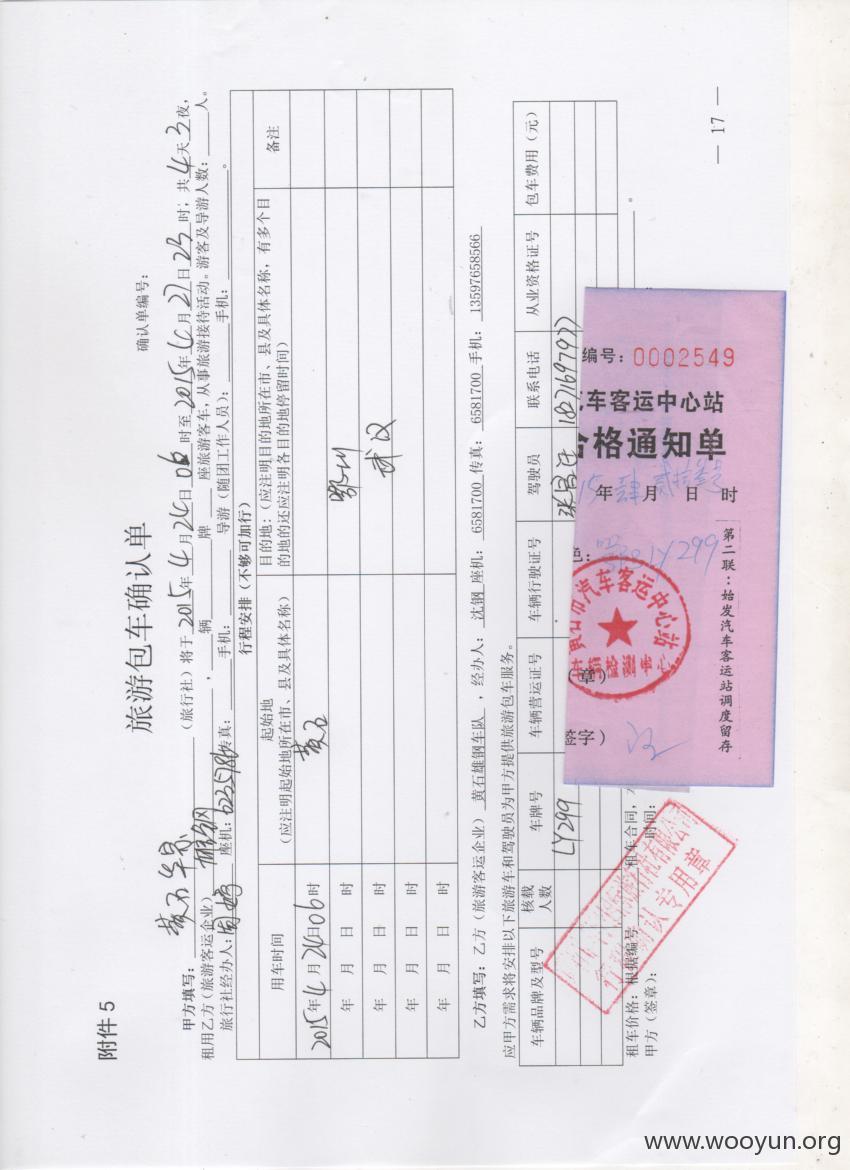 附件 5
旅游包车确认单
确认单编号：
甲方填写：黄石华景（旅行社）将于2015年4月24日06时至2015年4月27日23时；共4天3夜，
租用乙方（旅游客运企业）雄钢，辆牌座旅游客车，从事旅游接待活动。游客及导游人数：人。
旅行社经办人：座机：传真：手机：导游（随团工作人员）：手机：。
行程安排（不够可加行）
用车时间
起始地（应注明起始地所在市、县及具体名称）
目的地：（应注明目的地所在市、县及具体名称，有多个目的地的还应注明各目的地停留时间）
备注
2015年4月24日06时
黄石
鄂州
年 月 日 时
武汉
年 月 日 时
年 月 日 时
年 月 日 时
乙方填写：乙方（旅游客运企业）黄石雄钢车队，经办人：沈钢 座机：6581700 传真：6581700 手机：13597658566
应甲方需求将安排以下旅游车和驾驶员为甲方提供旅游包车服务。
车辆品牌及型号 核载人数 车牌号 车辆营运证号 车辆行驶证号 驾驶员 联系电话 从业资格证号 包车费用（元）
LY299 18271697977
租车价格：根据编号 租车合同，
甲方（签章）： 时间：
。
— 17 —
编号：0002549
汽车客运中心站
合格通知单
年 月 日 时
色：
LY299
黄石市汽车客运中心站
检测中心
（章）
签字）
第二联：始发汽车客运站调度留存
认专用章
www.wooyun.org